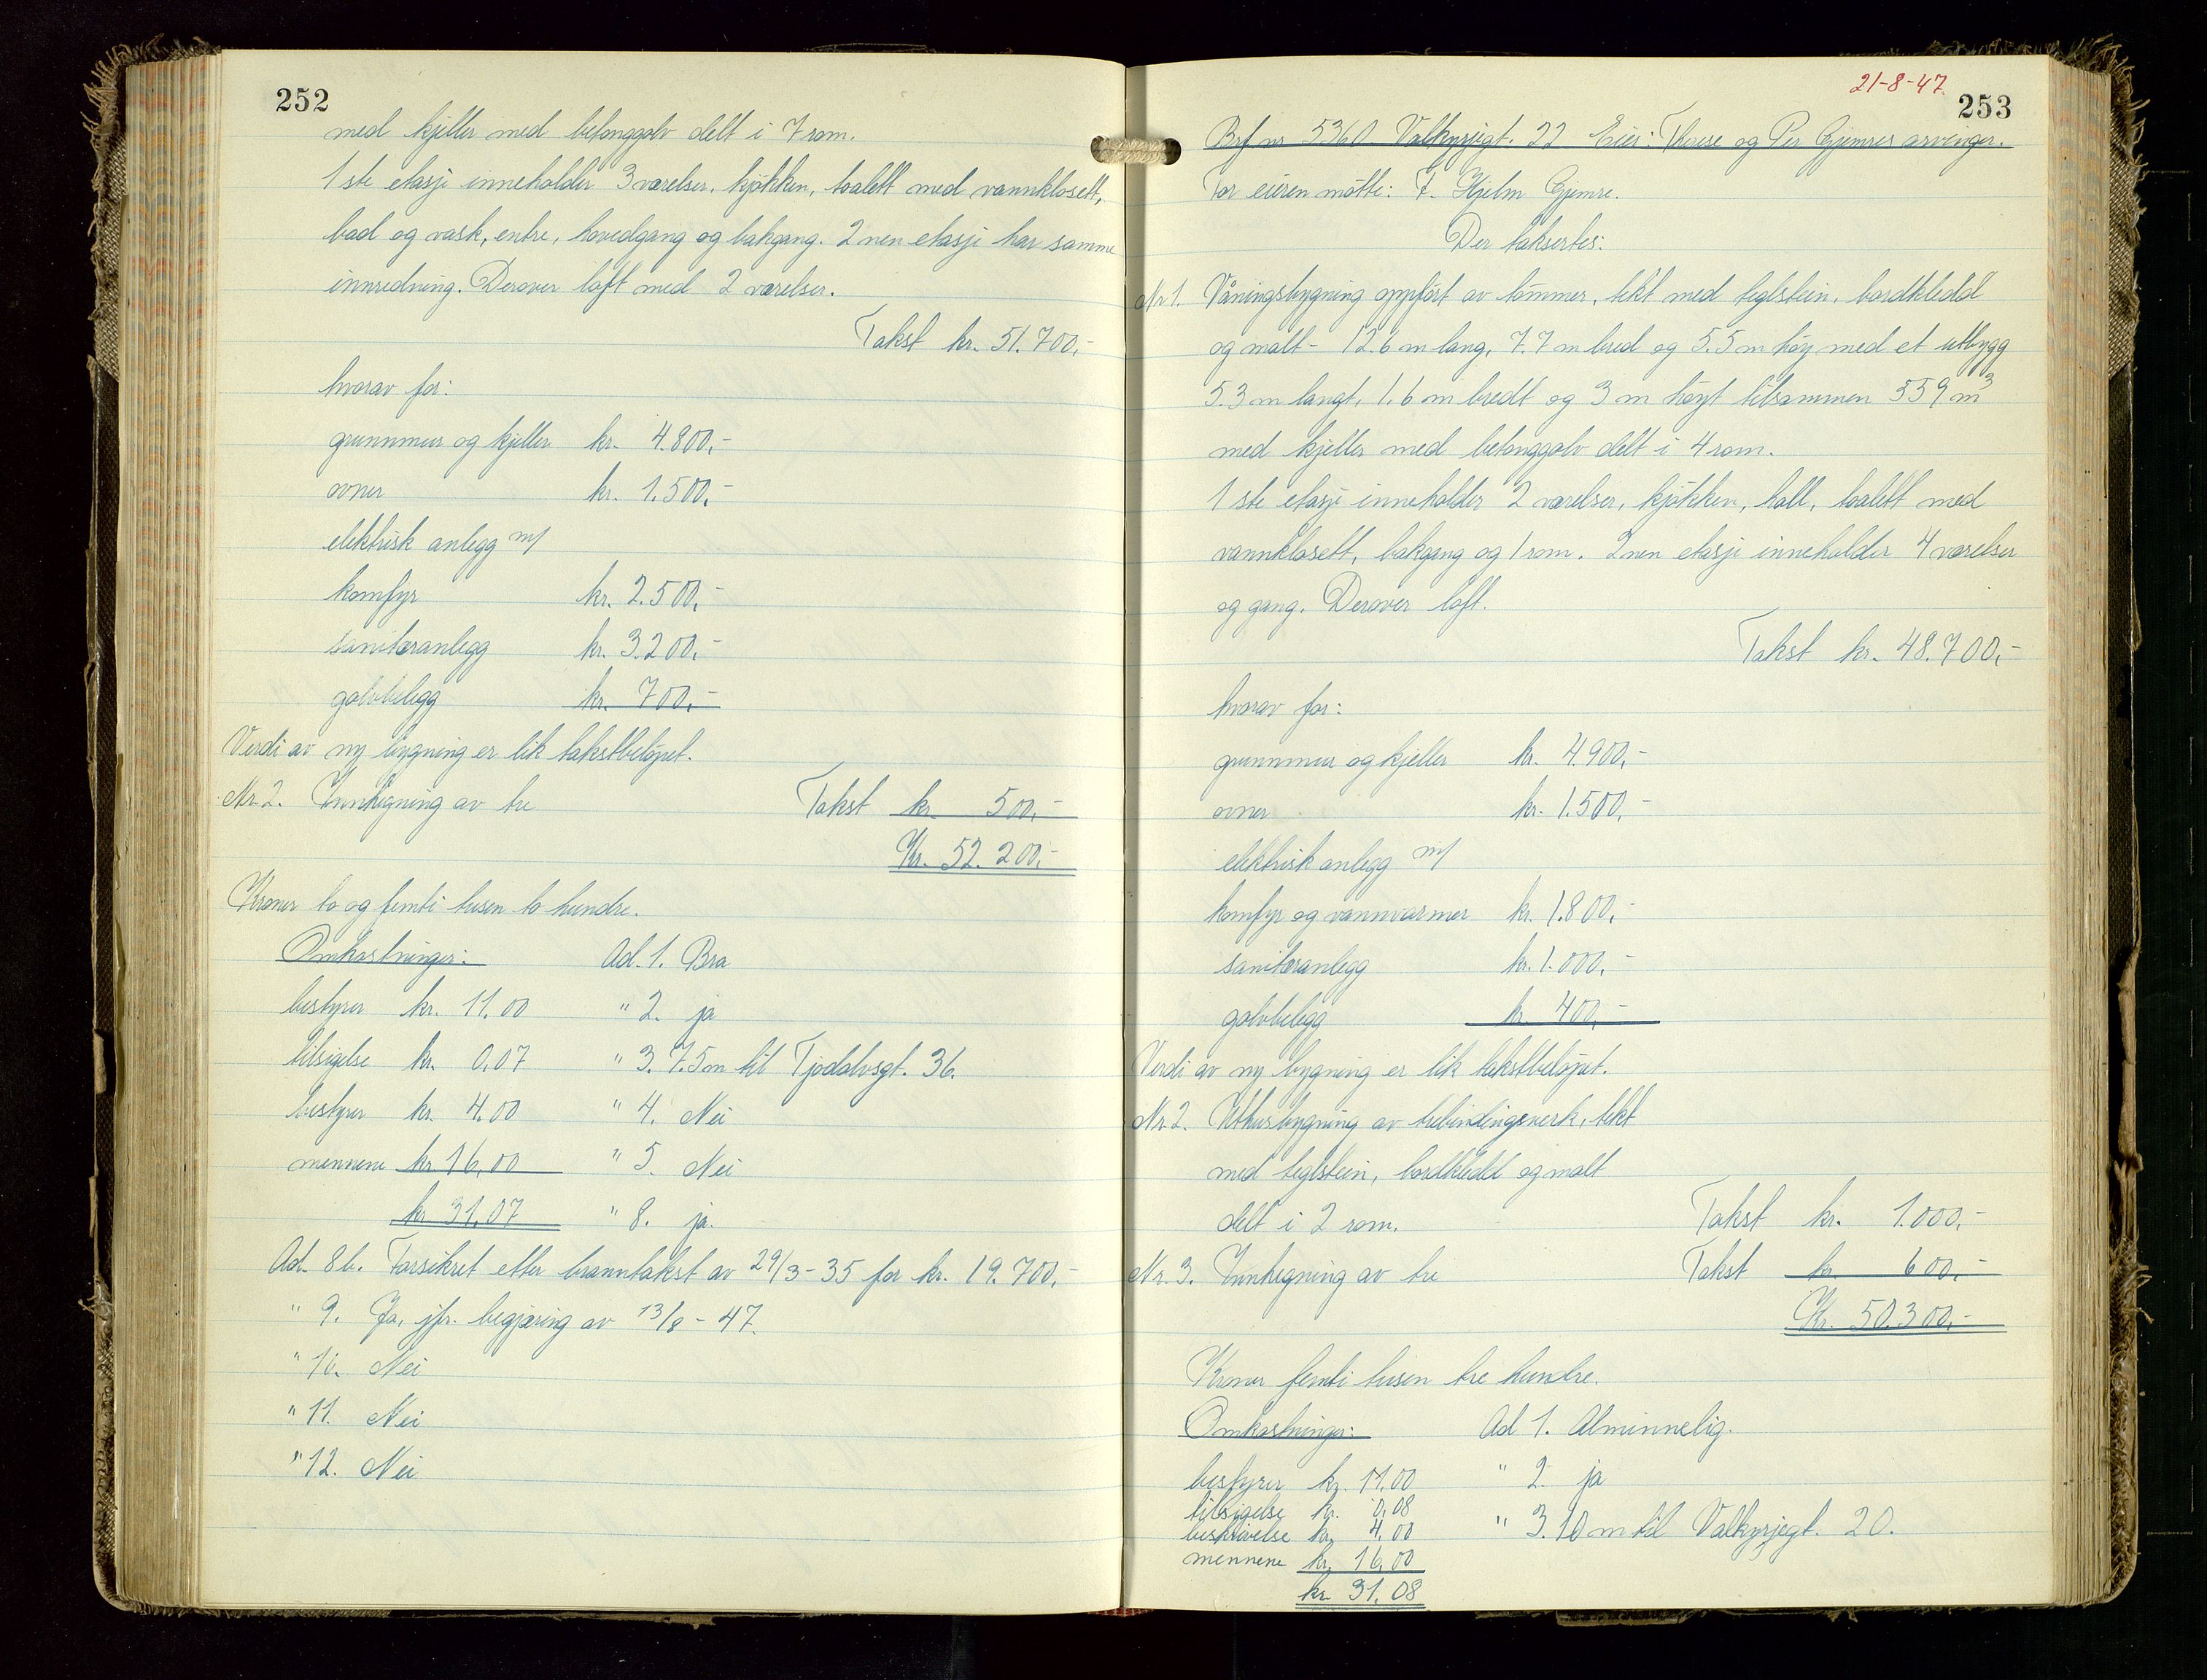 252
med kjeller med betonggolv delt i 7 rom.
1ste etasje inneholder 3 værelser, kjøkken, toalett med vannklosett,
bad og vask, entre, hovedgang og bakgang. 2nen etasje har samme
innredning. Derover loft med 2 værelser.
Takst kr. 51.700,-
hvorav for:
grunnmur og kjeller kr. 4.800,-
ovner kr. 1.500,-
elektrisk anlegg m/
komfyr kr. 2.500,-
sanitæranlegg kr. 3.200,-
golvbelegg kr. 700,-
Verdi av ny bygning er lik takstbeløpet.
Nr. 2. Innhegning av tre Takst kr. 500,-
Kr. 52.200,-
Kroner to og femti tusen to hundre.
Omkostninger: Ad. 1. Bra
bestyrer kr. 11.00 " 2. ja
tilsigelse kr. 0,07 " 3. 7.5m til Tjodolvsgt. 36.
bestyrer kr. 4.00 " 4. Nei
mennene kr. 16,00 " 5. Nei
kr. 31,07 " 8. ja.
Ad. 8b. Forsikret etter branntakst av 29/3-35 for kr. 19.700,-
" 9. Ja, jfr. begjæring av 13/8-47.
" 10. Nei
" 11. Nei
" 12. Nei
21-8-47
253
Brf nr 5360 Valkyrjegt. 22 Eier: Therese og Per Gjemres arvinger.
For eieren møtte: F. Hjelm Gjemre.
Der taksertes:
Nr 1. Våningsbygning oppført av tømmer, tekt med teglstein, bordkledd
og malt - 12.6 m lang, 7.7 m bred og 5.5 m høy med et utbygg
5.3 m langt, 1.6 m bredt og 3 m høyt tilsammen 559 m³
med kjeller med betonggolv delt i 4 rom.
1ste etasje inneholder 2 værelser, kjøkken, hall, toalett med
vannklosett, bakgang og 1 rom. 2nen etasje inneholder 4 værelser
og gang. Derover loft.
Takst kr. 48.700,-
hvorav for:
grunnmur og kjeller kr. 4.900,-
ovner kr. 1.500,-
elektrisk anlegg m/
komfyr og vannvarmer kr. 1.800,-
sanitæranlegg kr. 1.000,-
golvbelegg kr. 400,-
Verdi av ny bygning er lik takstbeløpet.
Nr. 2. Uthusbygning av trebindingsverk, tekt
med teglstein, bordkledd og malt
delt i 2 rom. Takst kr. 1.000,-
Nr. 3. Innhegning av tre Takst kr. 600,-
Kr. 50.300,-
Kroner femti tusen tre hundre.
Omkostninger: Ad 1. Alminnelig.
bestyrer kr. 11,00 " 2. ja
tilsigelse kr. 0,08
beskrivelse kr. 4.00 " 3. 10 m til Valkyrjegt. 20.
mennene kr. 16,00
kr. 31,08